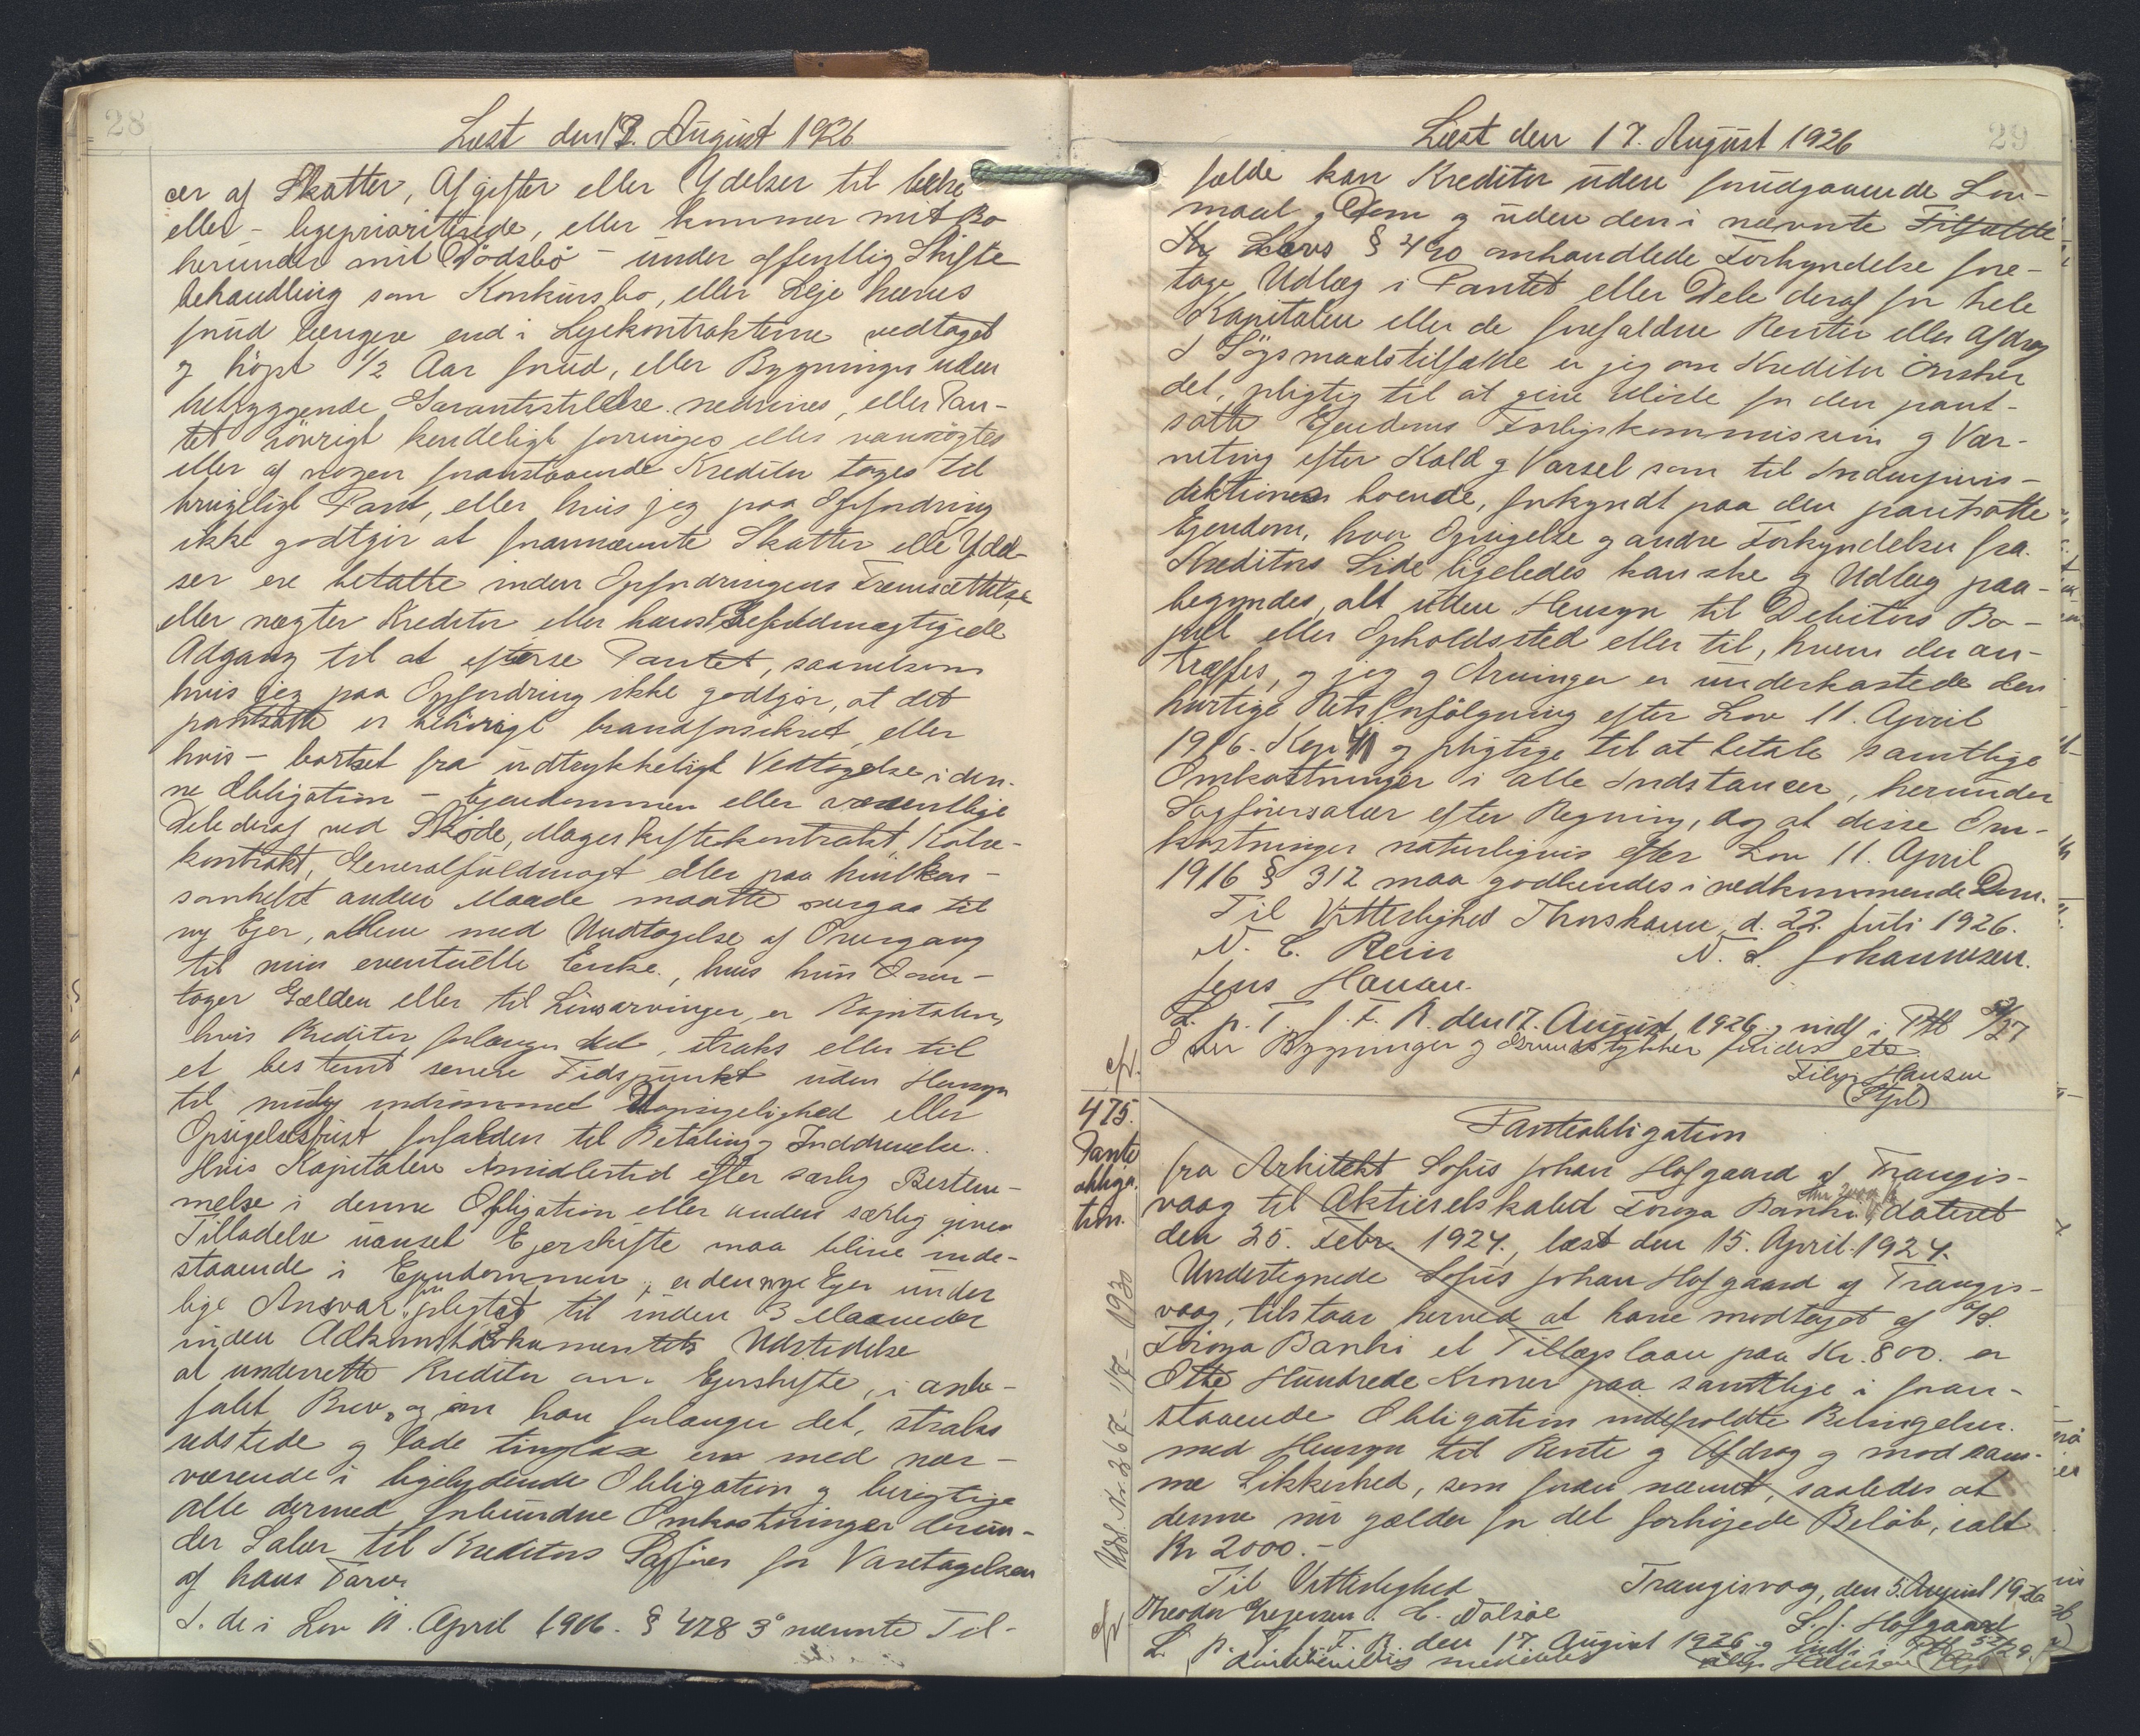 28
Læst den 17. August 1926
cer af Skatter, Afgifter eller Ydelser til bedre
eller - ligeprioriterede, eller kommer mit Bo
herunder mit Dødsbo - under offentlig Skifte
behandling som Konkursbo, eller Leje hæves
forud længere end i Lejekontrakterne vedtaget
og højst 1/2 Aar forud, eller Bygninger uden
betryggende Garantistillelse nedrives, eller Pan-
tet iövrigt kendeligt forringes eller vanrögtes
eller af nogen foranstaaende Kreditor tages til
brugeligt Pant, eller hvis jeg paa Opfordring
ikke godtgör at frannævnte Skatter elle Ydel-
ser ere betalte inden Opfordringens Fremsættelse,
eller nægter Kreditor eller hans Befuldmægtigede
Adgang til at efterse Pantet, saavelsom
hvis jeg paa Opfordring ikke godtgör, at det
pantsatte er behörigt brandforsikret, eller
hvis - bortset fra udtrykkeligt Vedtagelse i den-
ne Obligation - Ejendommen eller væsentlige
Dele deraf ved Sköde, Mageskiftekontrakt, Købe-
kontrakt, Generalfuldmagt eller paa hvilken-
somhelst anden Maade maatte overgaa til
ny Ejer, allene med Undtagelse af Overgang
til min eventuelle Enke, hvis hun over-
tager Gælden eller til Livsarvinger, er Kapitalen,
hvis Kreditor forlanger det, straks eller til
et bestemt senere Tidspunkt uden Hensyn
til mulig indrömmet Uopsigelighed eller
Opsigelsesfrist forfalden til Betaling og Inddrivelse.
Hvis Kapitalen imidlertid efter særlig Bestem-
melse i denne Obligation eller anden særlig given
Tilladelse uanset Ejerskifte maa blive inde-
staaende i Ejendommen, er den nye Ejer under
lige Ansvar pligtig til inden 3 Maaneder
inden Adkomstdokumentets Udstedelse
at underrette Kreditor om Ejerskifte, i anbe-
falet Brev, og om han forlanger det, straks
udstede og lade tinglæse en med nær-
værende i ligelydende Obligation og berigtige
alle dermed forbundne Omkostninger derun-
der Salær til Kreditors Sagförer for Varetagelsen
af hans Tarv.
I de i Lov 11. April 1916 § 478 3° nævnte Til-
29
Læst den 17. August 1926
fælde kan Kreditor uden forudgaaende Lov-
maal og Dom og uden den i nævnte Tilfælde
Lovs § 490 omhandlede Forkyndelse fore-
tage Udlæg i Pantet eller Dele deraf for hele
Kapitalen eller de forefaldne Renter eller Afdrag
I Sögsmaalstilfælde er jeg om Kreditor önsker
det, pligtig til at give Möde for den pant-
satte Ejendoms Forligskommission og Vær-
neting efter Kald og Varsel som til Indenjuris-
diktionen boende, forkyndt paa den pantsatte
Ejendom, hvor Opsigelse og andre Forkyndelser fra
Kreditors Side ligeledes kan ske og Udlæg paa-
begyndes, alt uden Hensyn til Debitors Bo-
pæl eller Opholdssted eller til, hvem der an-
træffes, og jeg og Arvinger er underkastede den
hurtige Retsforfölgning efter Lov 11. April
1916. Kap 41 og pligtige til at betale samtlige
Omkostninger i alle Indstancer, herunder
Sagförersalær efter Regning, dog at disse Om-
kostninger naturligvis efter Lov 11. April
1916 § 312 maa godkendes i vedkommende Dom.
Til Vitterlighed Thorshavn, d. 22. Juli 1926.
N. C. Rein N. L. Johannesen.
Jens Hansen.
L. p. T. f. F. R. den 17. August 1926 og indf i Ptb
Om Bygninger og Grundstykker findes etc
Filip Hansen
(Stpl)
cfr.
475.
Pante
obliga
tion.
Pantiobligation
fra Arkitekt Sofus Johan Hofgaard af Trangis-
vaag til Aktieselskabet Föroya Banki, dateret
den 25. Febr. 1924, læst den 15. April 1924.
Undertegnede Sofus Johan Hofgaard af Trangis-
vaag, tilstaar herved at have modtaget af A/S.
Föroya Banki et Tillægslaan paa Kr. 800. er
Otte Hundrede Kroner paa samtlige i foran-
staaende Obligation indeholdte Betingelser.
med Hensyn til Rente og Afdrag og mod sam-
me Sikkerhed, som foran nævnt, saaledes at
denne nu gælder for det forhöjede Belöb, ialt
Kr 2000.-
Udsl. Nr. 267 - 1/7 - 1930
Til Vitterlighed Trangisvag, den 5. August 1926
Theodor C. Dalsåe S. J. Hofgaard
L. p. T. f. F. R. den 17. August 1926 og indf. i Ptb
cfr